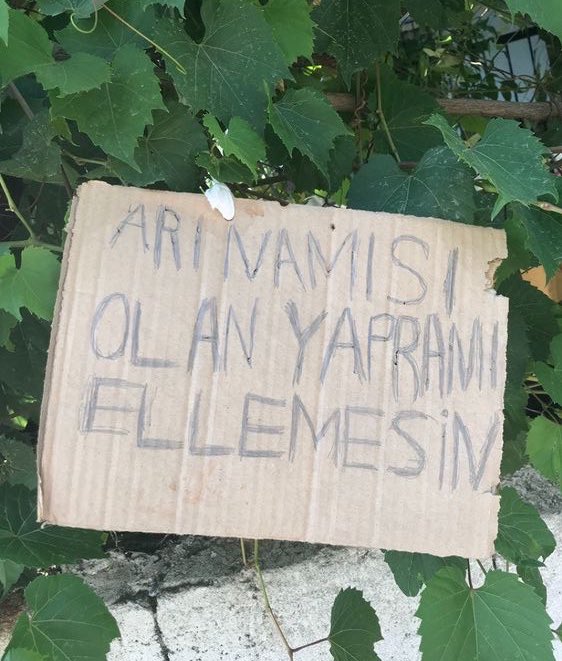 ARI NAMISI
OLAN YAPRAMI
ELLEMESİN